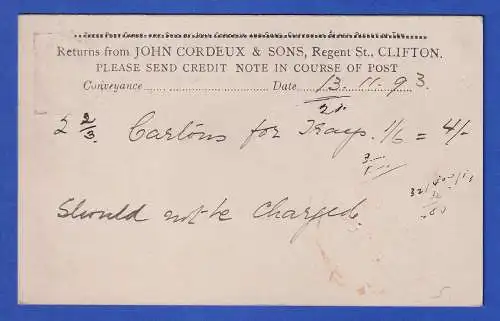 Returns from JOHN CORDEUX & SONS, Regent St., CLIFTON.
PLEASE SEND CREDIT NOTE IN COURSE OF POST
Conveyance Date 13.11.93
2 2/3 Cartons for 1/6 = 4/-
Should not be Charged.